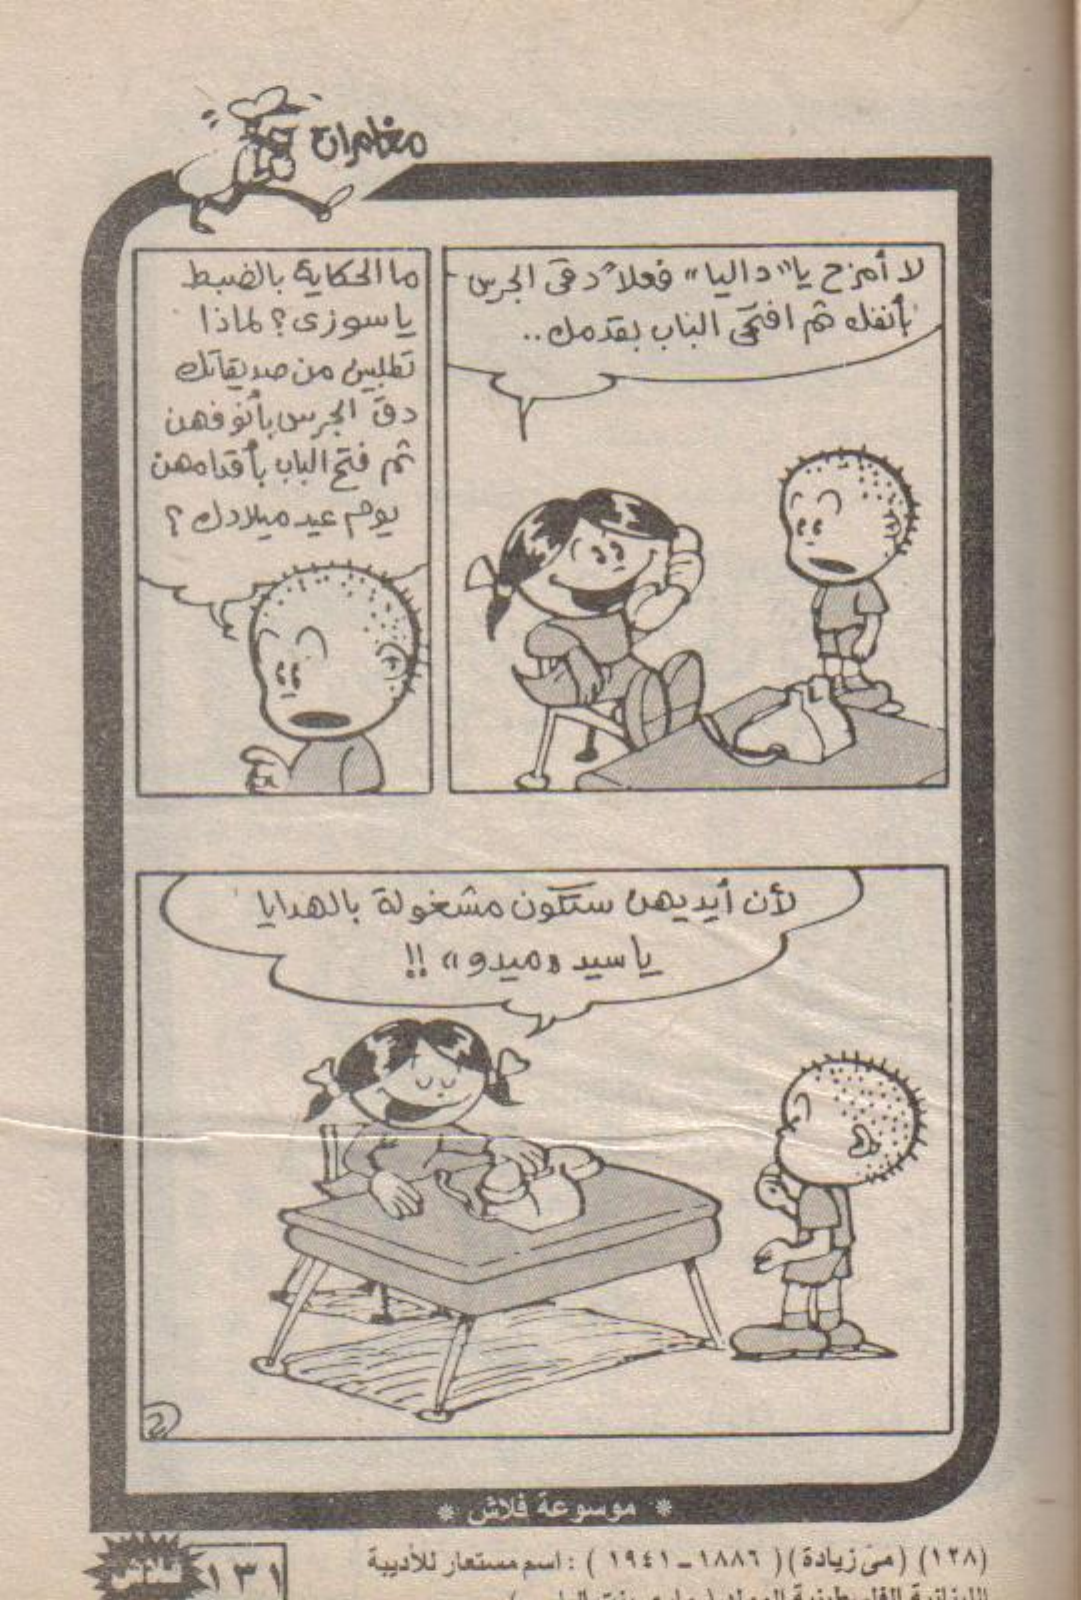 مغامرات
لا أمزح يا "داليا" فعلاً دقى الجرس
بأنفك ثم افتحى الباب بقدمك..
ما الحكاية بالضبط
يا سوزى؟ لماذا
تطلبين من صديقاتك
دق الجرس بأنوفهن
ثم فتح الباب بأقدامهن
يوم عيد ميلادك ؟
لأن أيديهن ستكون مشغولة بالهدايا
يا سيد «ميدو» !!
* موسوعة فلاش *
(١٢٨) (مى زيادة) (١٨٨٦ــ١٩٤١) : اسم مستعار للأديبة
١٣١
فلاش